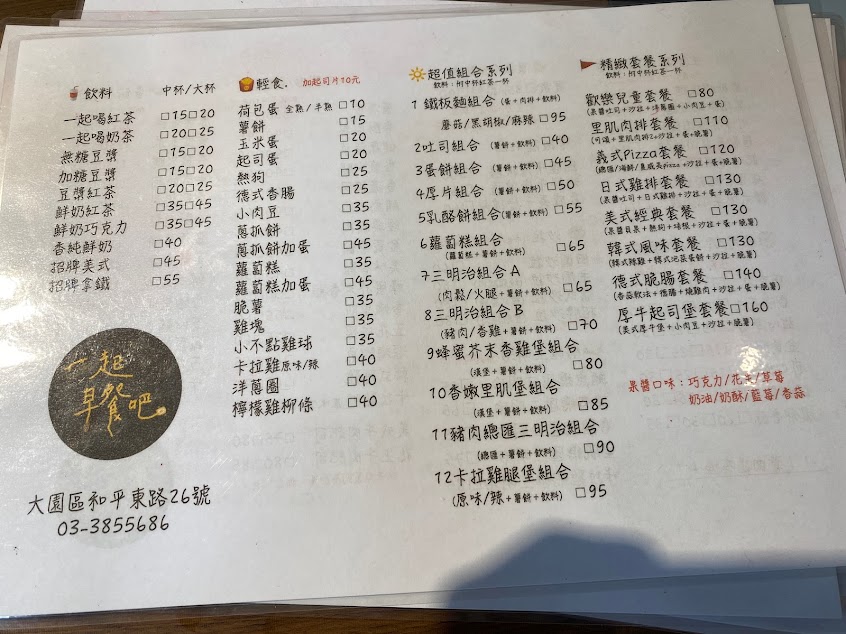 飲料 中杯/大杯
一起喝紅茶 □15□20
一起喝奶茶 □20□25
無糖豆漿 □15□20
加糖豆漿 □15□20
豆漿紅茶 □20□25
鮮奶紅茶 □35□45
鮮奶巧克力 □35□45
香純鮮奶 □40
招牌美式 □45
招牌拿鐵 □55
一起
早餐吧
大園區和平東路26號
03-3855686
輕食. 加起司片10元
荷包蛋 全熟/半熟 □10
薯餅 □15
玉米蛋 □20
起司蛋 □20
熱狗 □25
德式香腸 □25
小肉豆 □35
蔥抓餅 □35
蔥抓餅加蛋 □45
蘿蔔糕 □35
蘿蔔糕加蛋 □45
脆薯 □35
雞塊 □35
小不點雞球 □35
卡拉雞原味/辣 □40
洋蔥圈 □40
檸檬雞柳條 □40
超值組合系列
飲料:附中杯紅茶一杯
1 鐵板麵組合 (蛋+肉排+飲料)
蘑菇/黑胡椒/麻辣 □95
2吐司組合 (薯餅+飲料) □40
3蛋餅組合 (薯餅+飲料) □45
4厚片組合 (薯餅+飲料) □50
5乳酪餅組合(薯餅+飲料) □55
6蘿蔔糕組合
(蘿蔔糕+薯餅+飲料) □65
7三明治組合A
(肉鬆/火腿+薯餅+飲料) □65
8三明治組合B
(豬肉/香雞+薯餅+飲料) □70
9蜂蜜芥末香雞堡組合
(漢堡+薯餅+飲料) □80
10香嫩里肌堡組合
(漢堡+薯餅+飲料) □85
11豬肉總匯三明治組合
(總匯+薯餅+飲料) □90
12卡拉雞腿堡組合
(原味/辣+薯餅+飲料) □95
精緻套餐系列
飲料:附中杯紅茶一杯
歡樂兒童套餐 □80
(果醬吐司+沙拉+洋蔥圈+小肉豆+蛋)
里肌肉排套餐 □110
(可頌+里肌肉排2+沙拉+蛋+脆薯)
義式Pizza套餐 □120
(總匯/海鮮/夏威夷pizza+沙拉+蛋+脆薯)
日式雞排套餐 □130
(果醬吐司+日式雞排+沙拉+蛋+脆薯)
美式經典套餐 □130
(果醬貝果+熱狗+培根+沙拉+蛋+脆薯)
韓式風味套餐 □130
(韓式辣雞+韓式泡菜蛋餅+沙拉+脆薯)
德式脆腸套餐 □140
(香蒜軟法+德腸+燻雞肉+沙拉+蛋+脆薯)
厚牛起司堡套餐□160
(美式厚牛堡+小肉豆+沙拉+蛋+脆薯)
果醬口味:巧克力/花生/草莓
奶油/奶酥/藍莓/香蒜